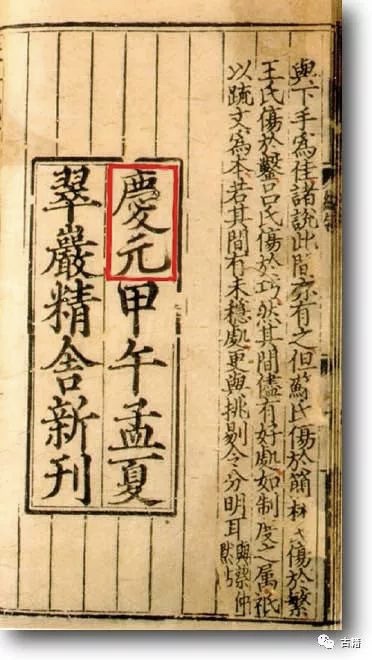 與下手為佳諸說此間亦有之但蘇氏傷於簡林氏傷於繁
王氏傷於鑿呂氏傷於巧然其間儘有好處如制度之属祇
以疏文為本若其間有未穩處更與挑剔令分明耳
與蔡仲
默帖
慶元甲午孟夏
翠嚴精舍新刊
古籍